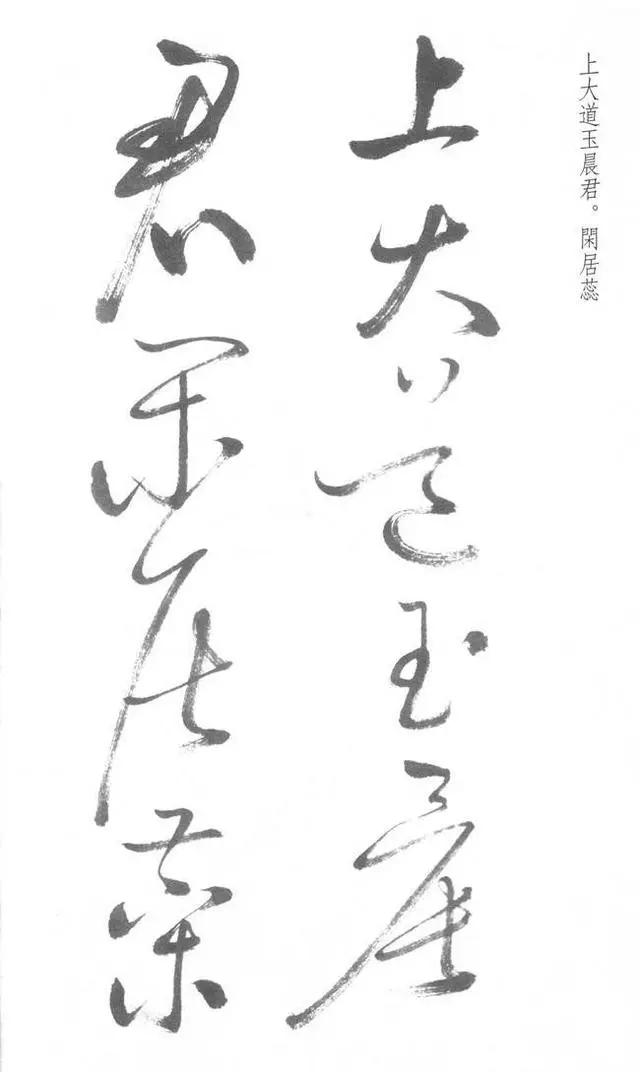 上大道玉晨君。閑居蕊
上大道玉晨
君閑居蕊